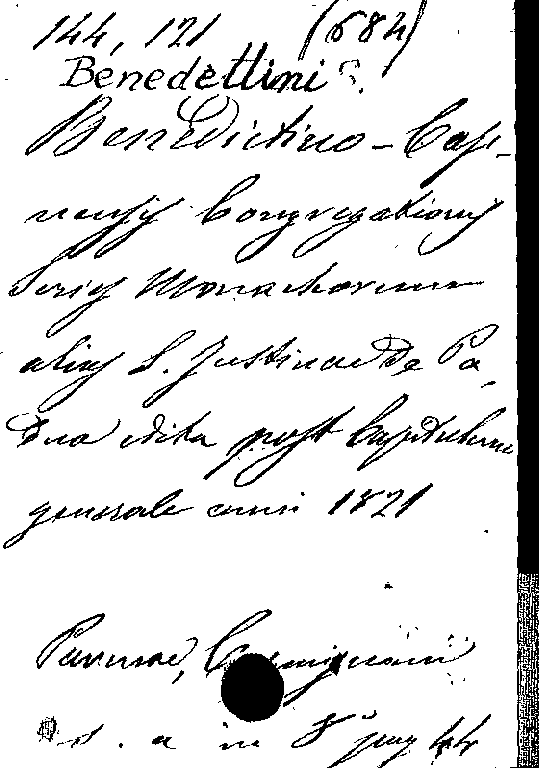 144, 121 (684)
Benedettini
Benedictino-Casi-
nensis Congregationis
Series Monachorum
alias S. Justinae De Pa,
dua edita post Capitulum
generale anni 1821
Parmae, Carmignani
s. a in 8° pag 44